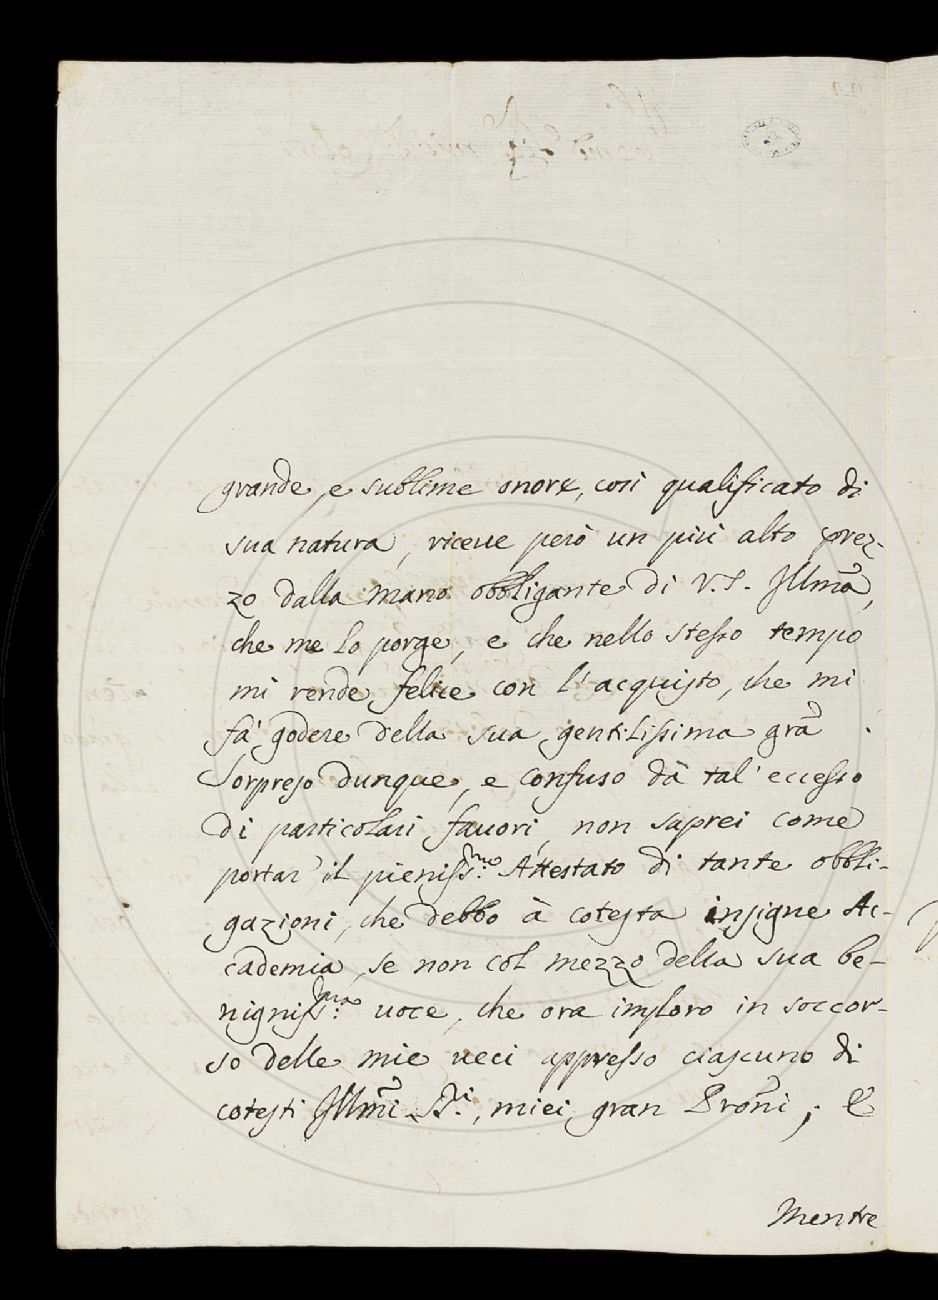 grande, e sublime onore, così qualificato di
sua natura, riceue però un più alto prez-
zo dalla mano obbligante di V. S. Illma,
che me lo porge, e che nello stesso tempo
mi rende felice con l'acquisto, che mi
fà godere della sua gentilissima gra .
Sorpreso dunque, e confuso dà tal' eccesso
di particolari fauori, non saprei come
portar' il pieniss.mo Attestato di tante obbli-
gazioni, che debbo à cotesta insigne Ac-
cademia, se non col mezzo della sua be-
nigniss.ma uoce, che ora imploro in soccor-
so delle mie ueci appresso ciascuno di
cotesti Illmi S.ri, miei gran Proñi; E
Mentre